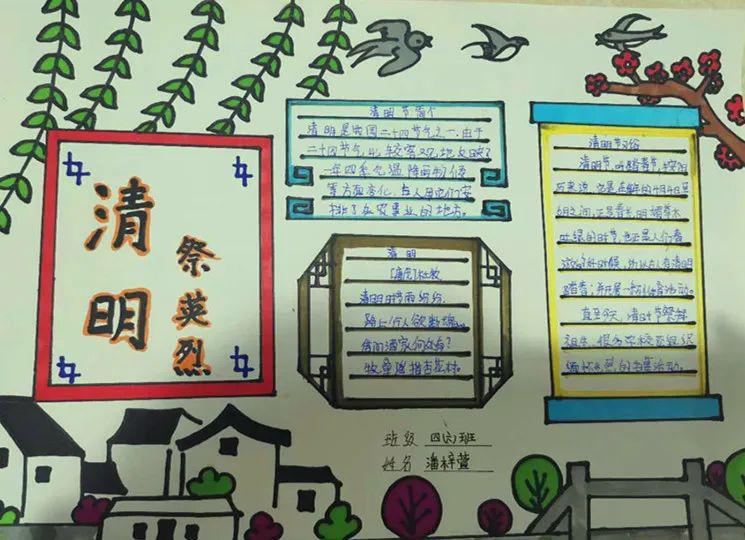 清明
祭英烈
清明节简介
清明是我国二十四节气之一.由于
二十四节气比较客观地反映了
一年四季气温、降雨、物候
等方面变化,古人用它们安
排了农事业的地方。
清明
[唐]杜牧
清明时节雨纷纷,
路上行人欲断魂。
借问酒家何处有?
牧童遥指杏花村。
清明节习俗
清明节,叫踏青节,按
历来说,也是在 的4月4日至
6日之间,正是春光明媚草木
吐绿的时节,也正是人们春
的好时候,所以古人有清明
踏青,并开展一 活动。
直至今天,清明节祭拜
祖先,
的扫墓活动。
班级 四
班
姓名 潘梓萱